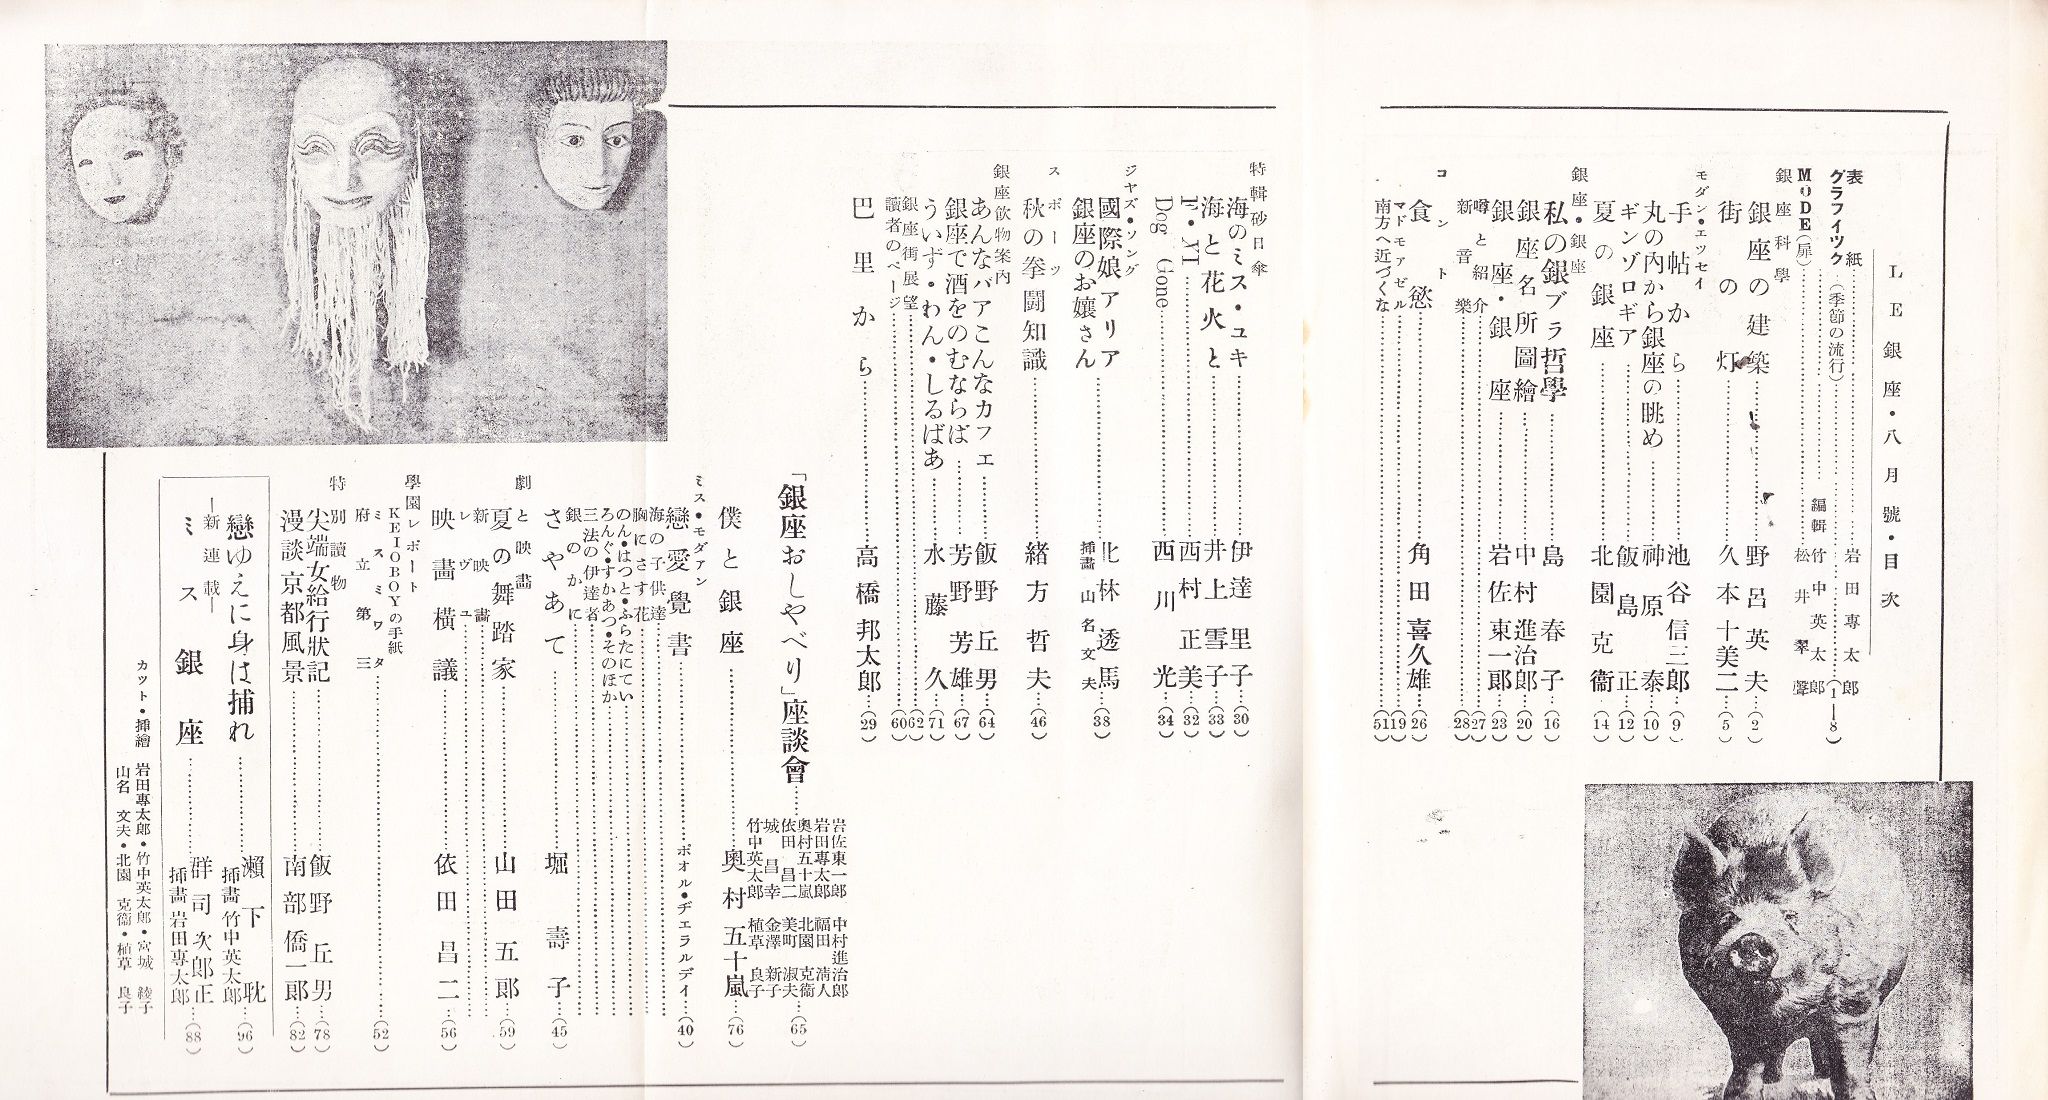 LE銀座・八月號・目次
表紙……岩田專太郎
グラフイツク(季節の流行)……(1—8)
MODE(扉)……編輯 竹中英太郎 松井翠聲
銀座科學
銀座の建築……野呂英夫…(2)
街の灯……久本十美二…(5)
モダン・エツセイ
手帖から……池谷信三郎…(9)
丸の內から銀座の眺め……神原泰…(10)
ギンゾロギア……飯島正…(12)
夏の銀座……北園克衞…(14)
銀座・銀座
私の銀ブラ哲學……島春子…(16)
銀座名所圖繪……中村進治郎…(20)
銀座・銀座……岩佐東一郎…(23)
噂と紹介……(27)
新音樂……(28)
コント
食慾……角田喜久雄…(26)
マドモアゼル……(19)
南方へ近づくな……(51)
特輯砂日傘
海のミス・ユキ……伊達里子…(30)
海と花火と……井上雪子…(33)
F・XI……西村正美…(32)
Dog Gone……西川光…(34)
ジヤズ・ソング
國際娘アリア……北林透馬…(38)
銀座のお孃さん 揷畵 山名文夫
スポーツ
秋の拳闘知識……緒方哲夫…(46)
銀座飲物案內
あんなバアこんなカフエ……飯野丘男…(64)
銀座で酒をのむならば……芳野芳雄…(67)
うゐず・わん・しるばあ……水藤久…(71)
銀座街展望……(62)
讀者のページ……(60)
巴里から……高橋邦太郎…(29)
「銀座おしやべり」座談會……(65)
岩佐東一郎 中村進治郎
岩田專太郎 福田淸人
奧村五十嵐 北園克衞
依田昌二 美町淑夫
城昌幸 金澤新子
竹中英太郎 植草良子
僕と銀座……奧村五十嵐…(76)
ミス・モダアン
戀愛覺書……ポオル・ヂエラルデイ…(40)
海の子供達
胸にさす花
のん・はつと・ふらたにてい
ろんぐ・すかあつ・そのほか
三法の伊達者
銀のかに
さやあて……堀壽子…(45)
劇と映畵
夏の舞踏家……山田五郎…(59)
新映畵
レヴュ
映畵橫議……依田昌二…(56)
學園レポート
KEIOBOYの手紙
ミスミワタ
府立第三……(52)
特別讀物
尖端女給行狀記……飯野丘男…(78)
漫談京都風景……南部僑一郎…(82)
戀ゆえに身は捕れ……瀨下耽…(96)
揷畵 竹中英太郎
—新連載—
ミス銀座……群司次郎正…(88)
揷畵 岩田專太郎
カツト・揷繪 岩田專太郎・竹中英太郎・宮城綾子
山名文夫・北園克衞・植草良子